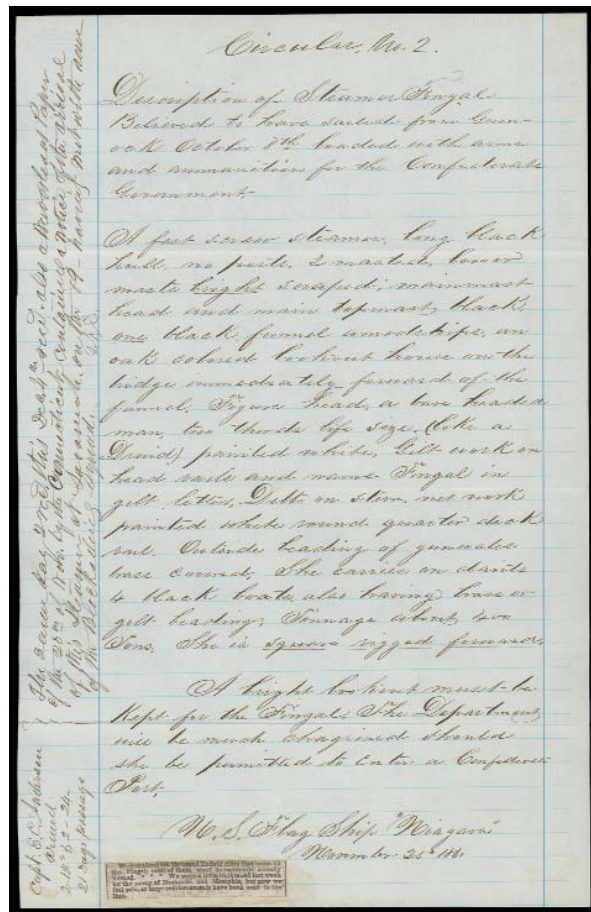 Circular, No. 2.
Description of Steamer Fingal
Believed to have sailed from Green-
ock October 8th loaded with arms
and ammunition for the Confederate
Government.
A fast screw steamer, long black
hull, no ports, 2 masted, lower
masts bright scraped; mainmast
head and main topmast, black,
one black funnel amidships, an
oak colored lookout house on the
bridge immediately forward of the
funnel. Figure head, a bare headed
man, two thirds life size, (like a
Druid) painted white, Gilt work on
head rails and name Fingal in
gilt letters, Ditto on stern, net work
painted white round quarter deck
rail. Outside beading of gunwales
brass covered, She carries on davits
4 black boats, also having brass or
gilt beading; Tonnage about 400
Tons, She is square rigged forward.
A bright lookout must be
Kept for the Fingal, The Department
will be much chagrined should
she be permitted to Enter a Confederate
Port.
U. S. Flag Ship "Niagara"
November 25th 1861
The same day I recd this Desn recd also a
of the 20th of Nov. by the Connecticut containing a notice of the arrival
of this Steamer at Savannah on the 19 - having met with none
of the Blockading Squad.
Capt. E. C. Anderson